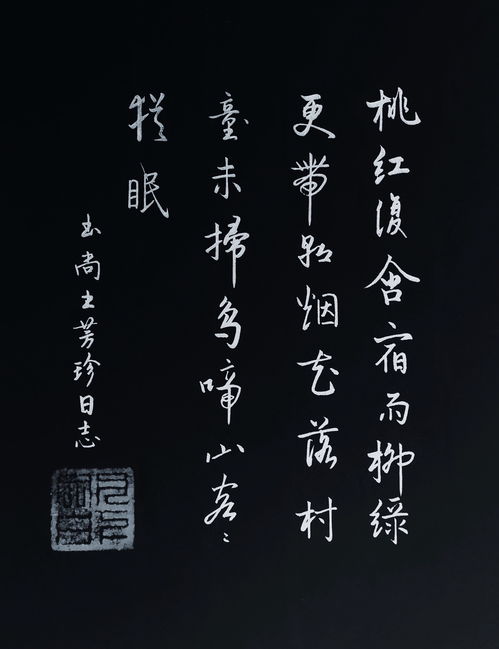 桃红復含宿雨柳绿
更帶朝烟花落村
童未掃鸟啼山客〻
犹眠
尚士芳珍日志